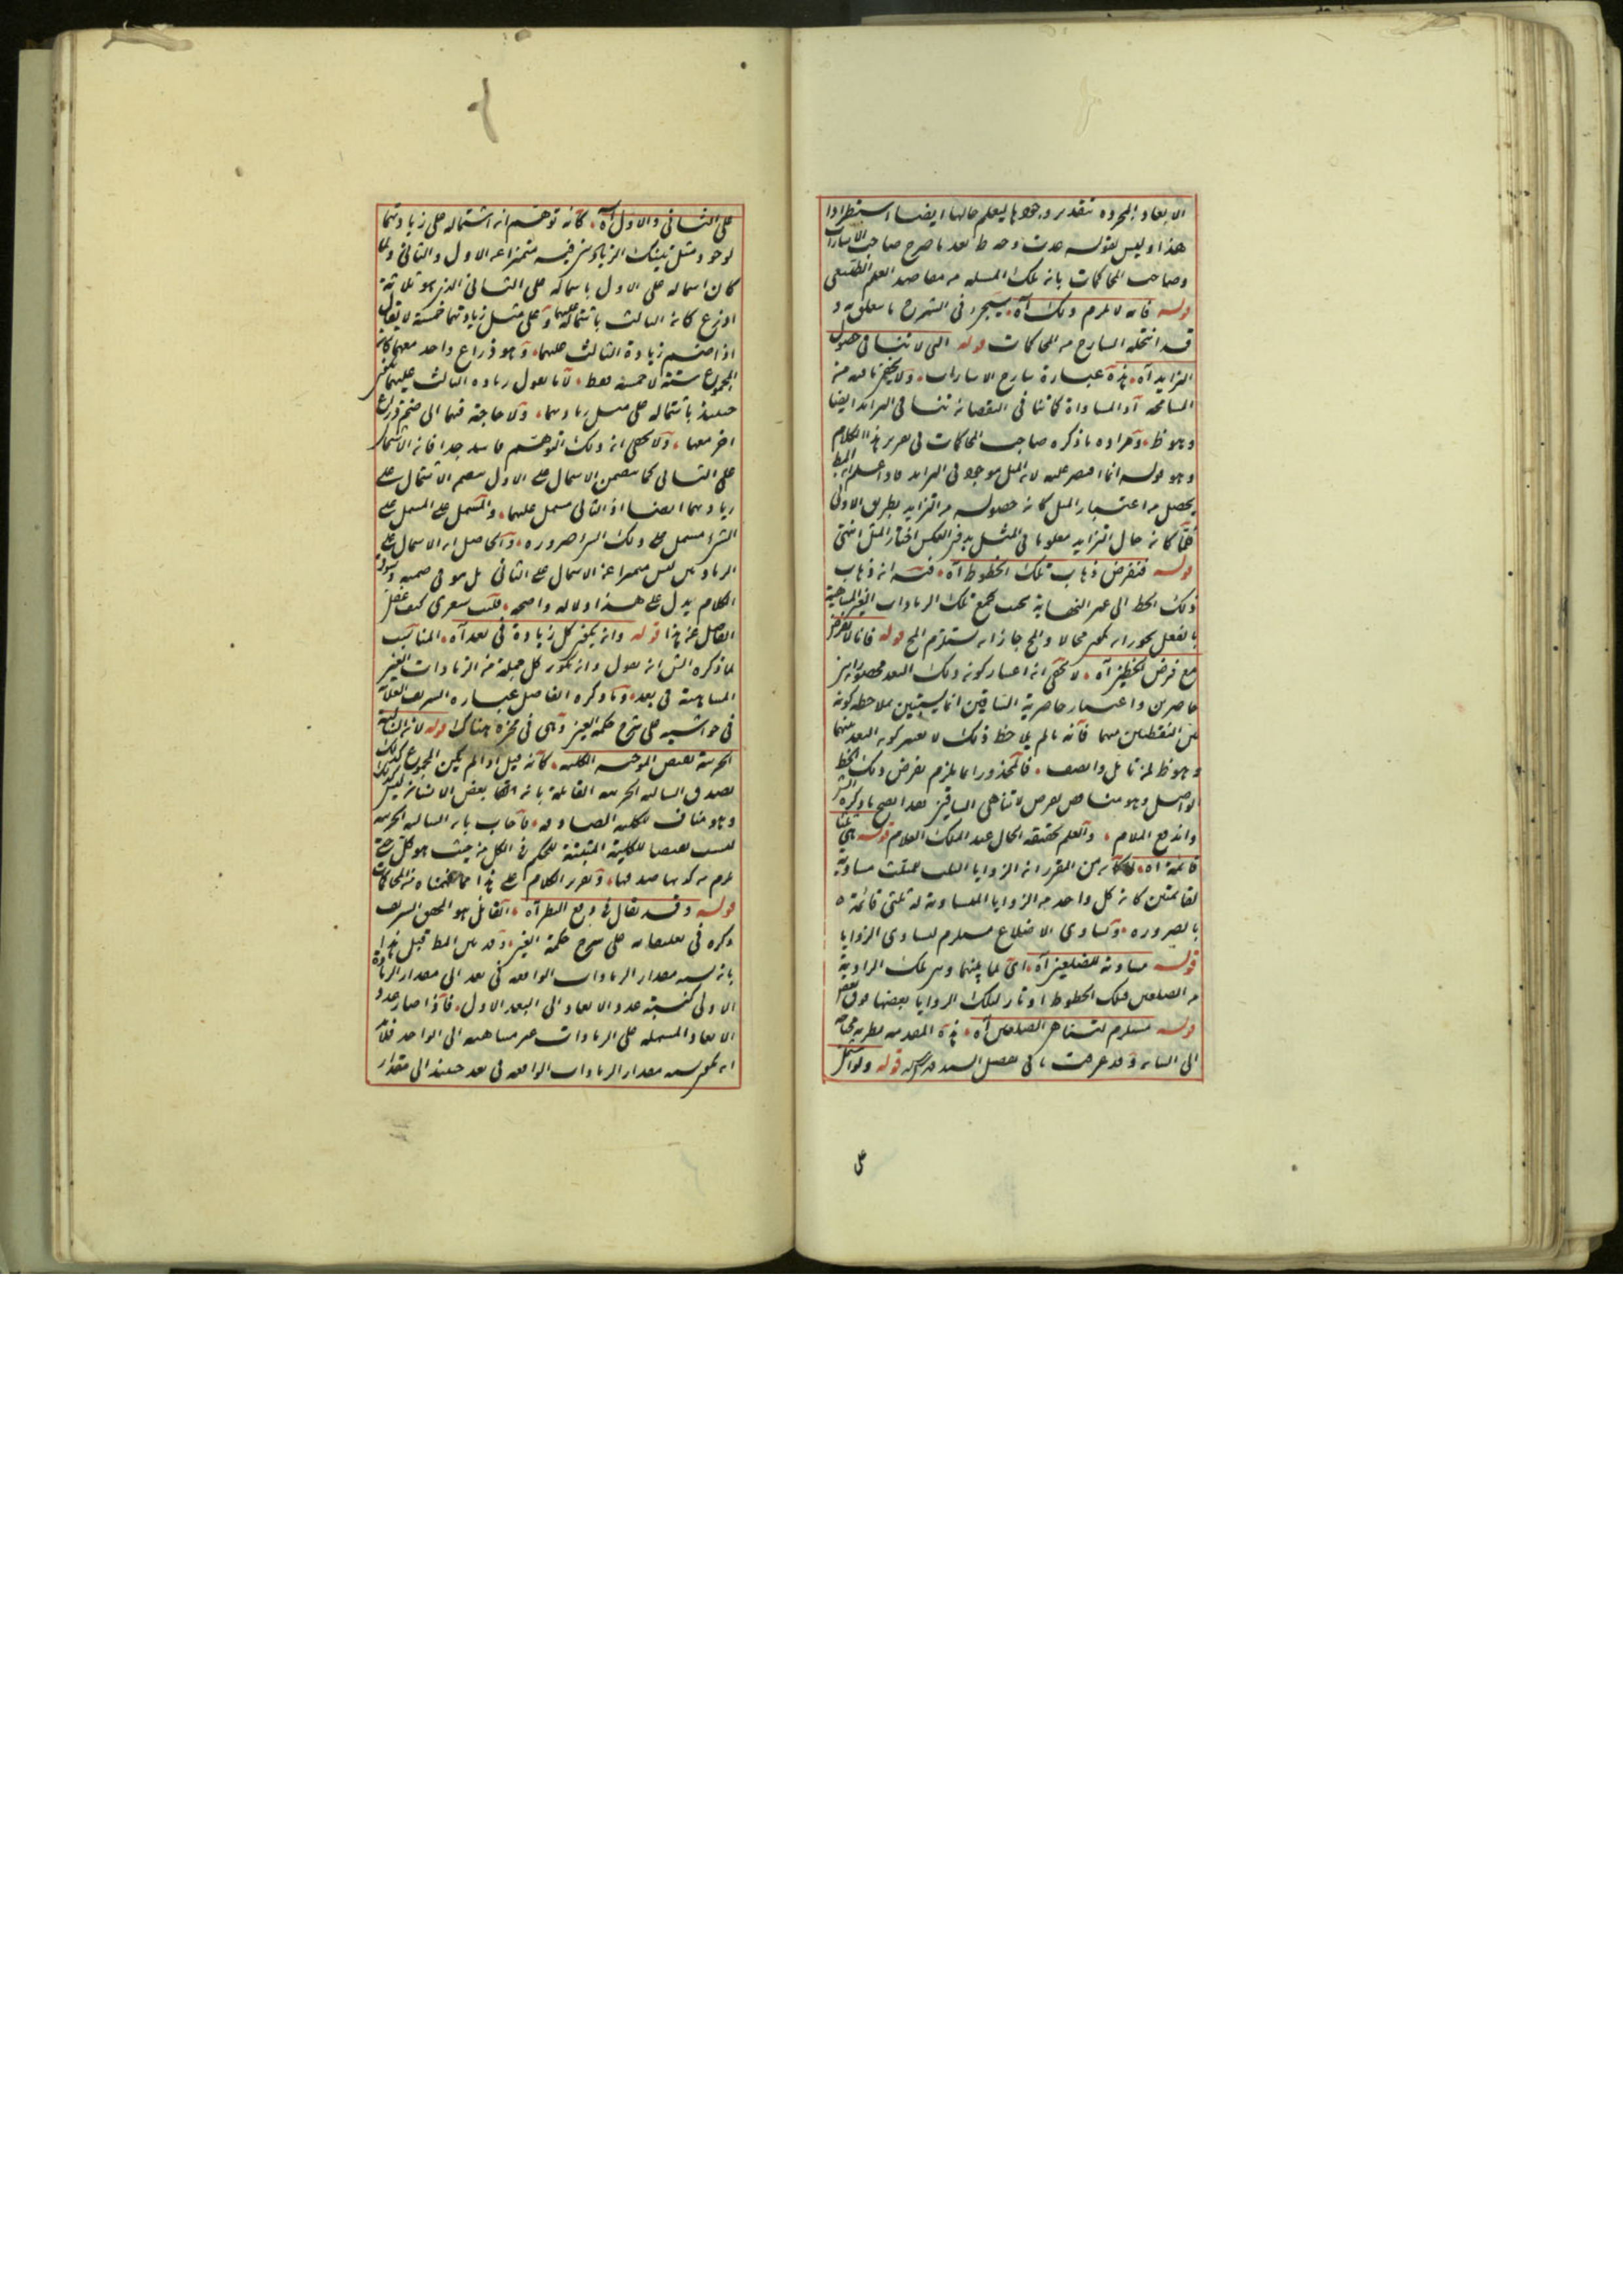 الابعاد المجرده بتقدير وجودها ليعلم حالها ايضا استطرادا
هذا وليس لقوله بعد ما صرح صاحب الاشارات
وصاحب المحاكمات بانه تلك المسله من مقاصد العلم الطبيعى
قوله فانه لا يلزم ذلك آه سيجئ فى الشرح ما يتعلق به و
قد انتحله الشارح من المحاكمات قوله التى لا تنافى حصول
التزايد آه هذه عبارة شارح الاشارات ولا يخفى ما فيه من
المسامحه اذ المساواة كما تنافى النقصان تنافى التزايد ايضا
وهو ظ ومراده ما ذكره صاحب المحاكمات فى تحرير هذا الكلام
وهو قوله انما اقتصر عليه لان المثل موجود فى الزايد فاذا علم ان المط
يحصل من اعتبار المثل كان حصوله من التزايد بطريق الاولى
فلما كان حال التزايد معلوما فى المثل بدون العكس اختار المثل انتهى
قوله فنفرض ذهاب تلك الخطوط آه فيه ان ذهاب
ذلك الخط الى غير النهاية بحيث يجمع تلك الزيادات الغير المتناهية
بالفعل يجوز ان يكون محالا والمح جاز ان يستلزم المح قوله فانا لا نفرض
مع فرض الخطين آه لا يخفى ان اعتبار كون ذلك البعد محصورا بين
حاصرين واعتبار حاصرية الساقين انما يستبين بملاحظه كونه
بين النقطتين منهما فانه ما لم يلاحظ ذلك لا يعتبر كون البعد بينهما
وهو ظ لمن تامل وانصف فالمحذور انما يلزم بفرض ذلك الخط
الواصل وهو مناقض لفرض لا تناهى الساقين فهذا يصح ما ذكره
واندفع الملام والعلم بحقيقة الحال عند الملك العلام قوله
قائمة آه من المقرر ان الزوايا الثلث للمثلث مساوية
لقائمتين كان كل واحد من الزوايا المتساوية له ثلثى قائمة
بالضروره وتساوى الاضلاع مستلزم لتساوى الزوايا
قوله مساوية للضلعين آه اى لما بينهما وبين تلك الزاوية
من الضلعين فتلك الخطوط اوتار لتلك الزوايا بعضها فوق بعض
قوله مستلزم لتناهى الضلعين آه هذه المقدمه نظرية محتاجه
الى البيان وقد عرفت ما فى تفصيل السيد قدس سره قوله
على
على الثانى والاول آه كانه توهم انه اشتماله على زيادتهما
لوجود مثل تينك الزيادتين فيه متميزا عن الاول والثانى ولما
كان اشتماله على الاول باشتماله على الثانى الذى هو ثلاثة
اذرع كان الثالث باشتماله عليهما وعلى مثل زيادتهما خمسة لا يقال
اذا ضم زيادة الثالث عليهما وهو ذراع واحد معهما كان
المجموع ستة لا خمسة فقط لانا نقول زيادة الثالث عليهما
حينئذ باشتماله على مثل زيادتهما ولا حاجة فيهما الى ضم ذراع
اخر معها ولا يخفى ان ذلك التوهم فاسد جدا فان الاشتمال
على الثانى كما يتضمن الاشتمال على الاول يتضمن الاشتمال على
زيادتهما ايضا اذ الثانى مشتمل عليهما والمشتمل على المشتمل على
الشئ مشتمل على ذلك الشئ ضرورة والحاصل ان الاشتمال على
الزيادتين ليس متميزا عن الاشتمال على الثانى بل هو فى ضمنه وسوق
الكلام يدل على هذا دلاله واضحه فليت شعرى كيف غفل
الفاضل عن هذا قوله وانه يمكن كل زيادة فى بعد آه المناسب
لما ذكره الش ان يقول وانه يكون كل جملة من الزيادات الغير
المتناهية فى بعد وما ذكره الفاضل عباره الشريف العلامة
فى حواشيه على شرح حكمة العين وهى فى محزه هناك قوله لان السالبة
الجزئية نقيض الموجبه الكليه كانه قيل اذا لم يكن المجموع كذلك
يصدق السالبه الجزئيه القائلة بانه بعض الانسان ليس كذلك
وهو مناف للكليه الصادقه فاجاب بان السالبه الجزئيه
ليست نقيضا للكلية المثبتة للحكم فى الكل من حيث هو كل حتى
يلزم من كذبها صدقها وتقرير الكلام على هذا مما فهمناه من المحاكمات
قوله وقد يقال فى دفع النظر آه القائل هو المحقق الشريف
ذكره فى تعليقاته على شرح حكمة العين وقد بين المط قبل هذا
بانه نسبة مقدار الزيادات الواقعه فى بعد الى مقدار الزيادة
الاولى كنسبة عدد الابعاد الى البعد الاول فاذا صار عدد
الابعاد المشتمله على الزيادات غير متناهيه الى الواحد فلابد
ان يكون نسبة مقدار الزيادات الواقعه فى بعد حينئذ الى مقدار